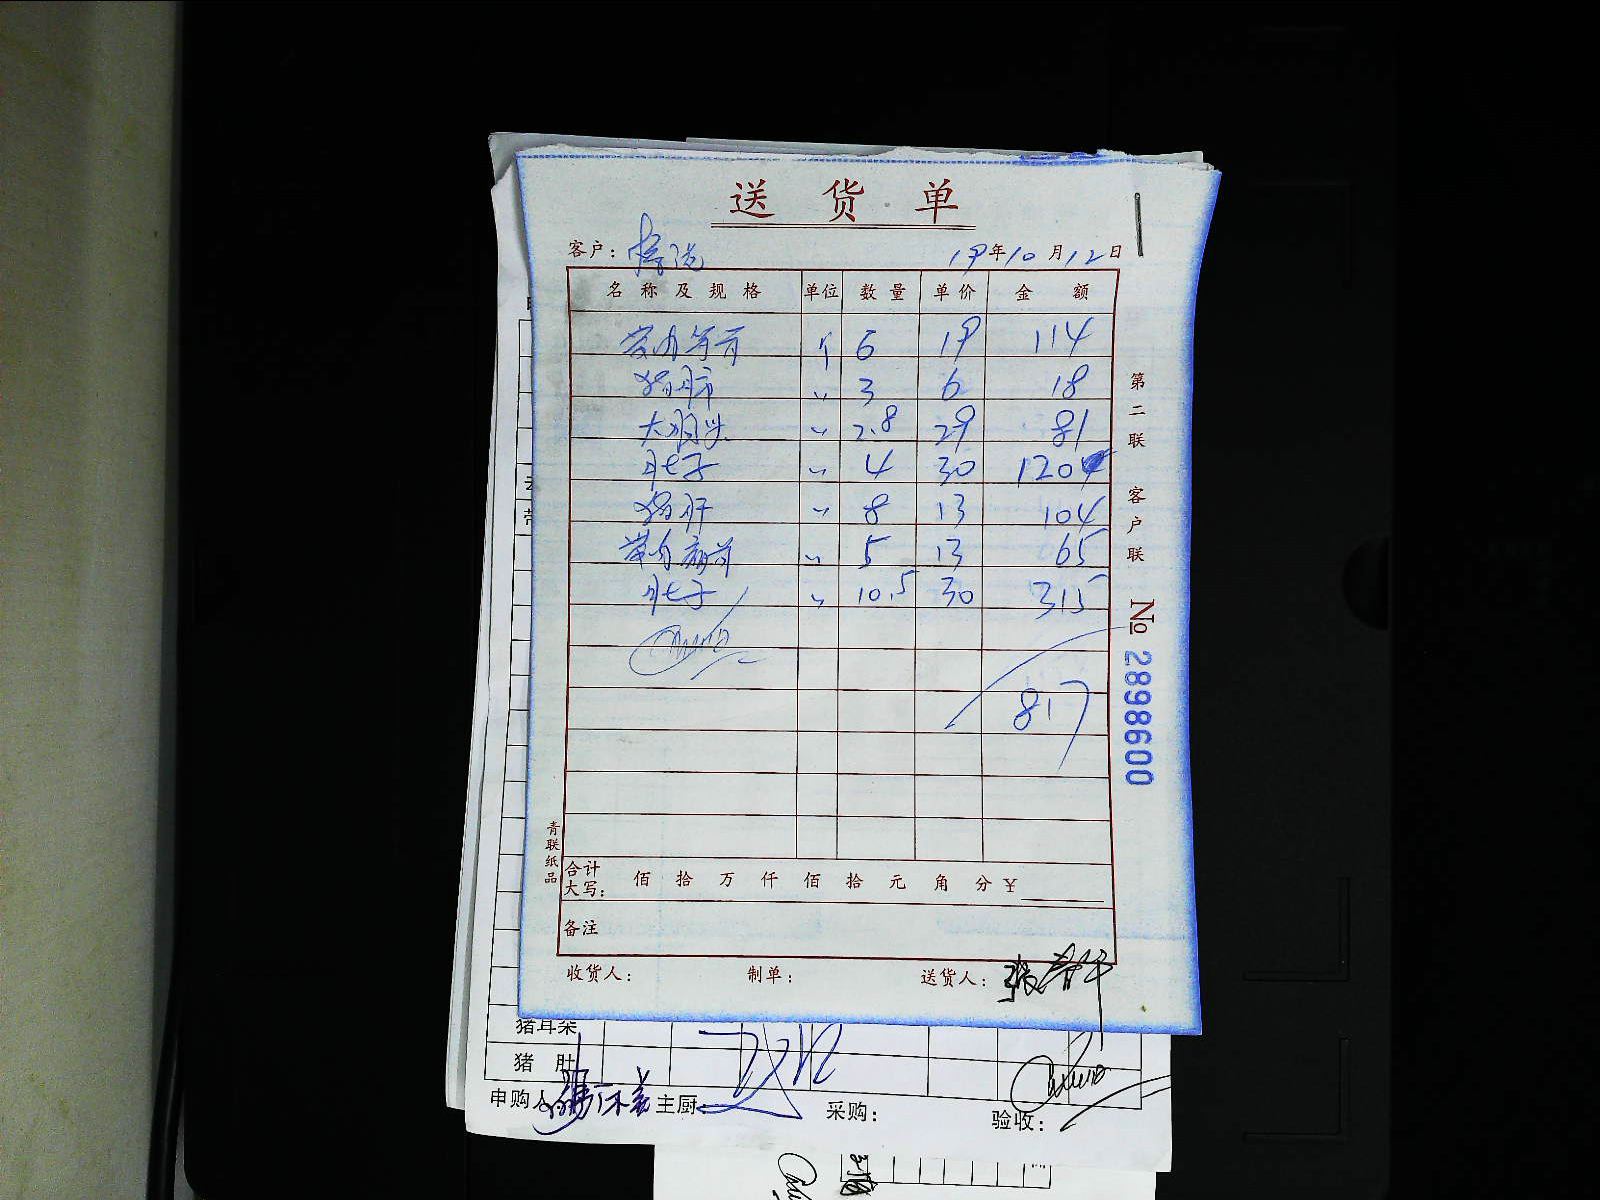 送 货 单
客户: 19年10月12日
名 称 及 规 格 单位 数 量 单 价 金 额
个 6 19 114
猪肺 〃 3 6 18
大明头 〃 2.8 29 81
肚子 〃 4 30 120
猪肝 〃 8 13 104
〃 5 13 65
肚子 〃 10.5 30 315
817
第二联 客户联
№ 2898600
青联纸品
合计大写: 佰 拾 万 仟 佰 拾 元 角 分 ¥
备注
收货人: 制单: 送货人:
猪耳朵
猪 肚
申购人 主厨: 采购: 验收: